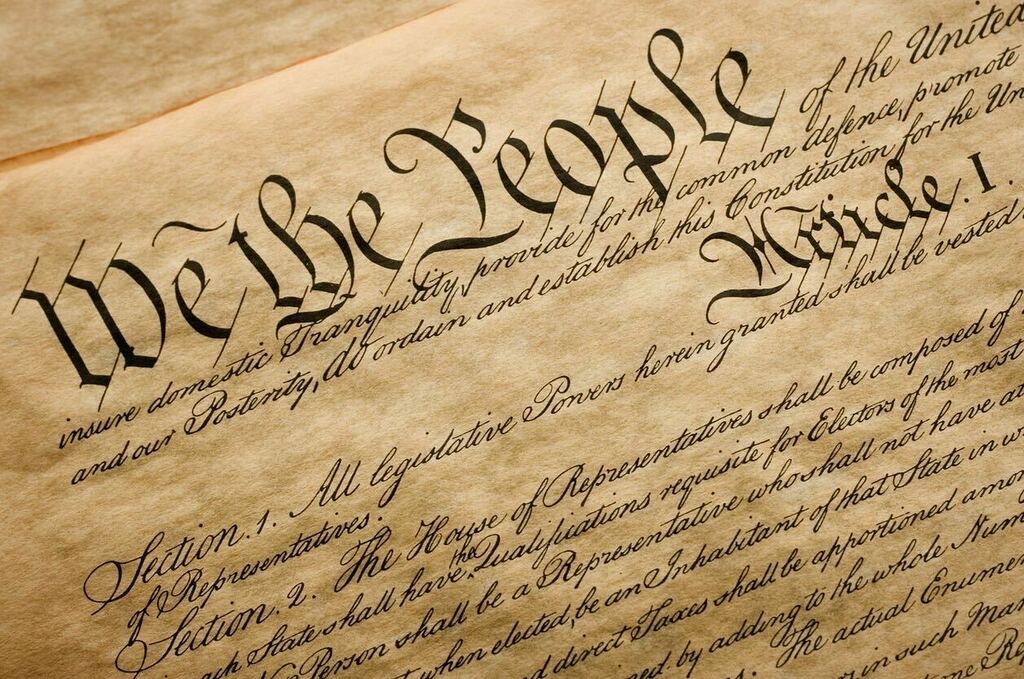 We the People of the United
insure domestic Tranquility, provide for the common defence, promote
and our Posterity, do ordain and establish this Constitution for the Un
Article. I.
Section. 1. All legislative Powers herein granted shall be vested
of Representatives.
Section. 2. The House of Representatives shall be composed of
ach State shall have the Qualifications requisite for Electors of the most
No Person shall be a Representative who shall not have at
when elected, be an Inhabitant of that State in w
d direct Taxes shall be apportioned amon
ned by adding to the whole Num
The actual Enumer
in such Man
one Re